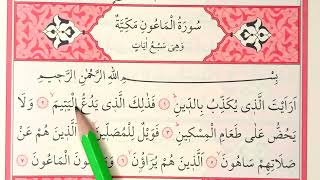 سُورَةُ الْمَاعُونِ مَكِّيَّةٌ
وَهِىَ سَبْعُ اٰيَاتٍ
بِسْمِ اللّٰهِ الرَّحْمٰنِ الرَّحِيمِ
اَرَاَيْتَ الَّذٖى يُكَذِّبُ بِالدّٖينِ ١ فَذٰلِكَ الَّذٖى يَدُعُّ الْيَتٖيمَ ٢ وَلَا
يَحُضُّ عَلٰى طَعَامِ الْمِسْكٖينِ ٣ فَوَيْلٌ لِلْمُصَلّٖينَ ٤ اَلَّذٖينَ هُمْ عَنْ
صَلَاتِهِمْ سَاهُونَ ٥ اَلَّذٖينَ هُمْ يُرَاؤُنَ ٦ الْمَاعُونَ ٧